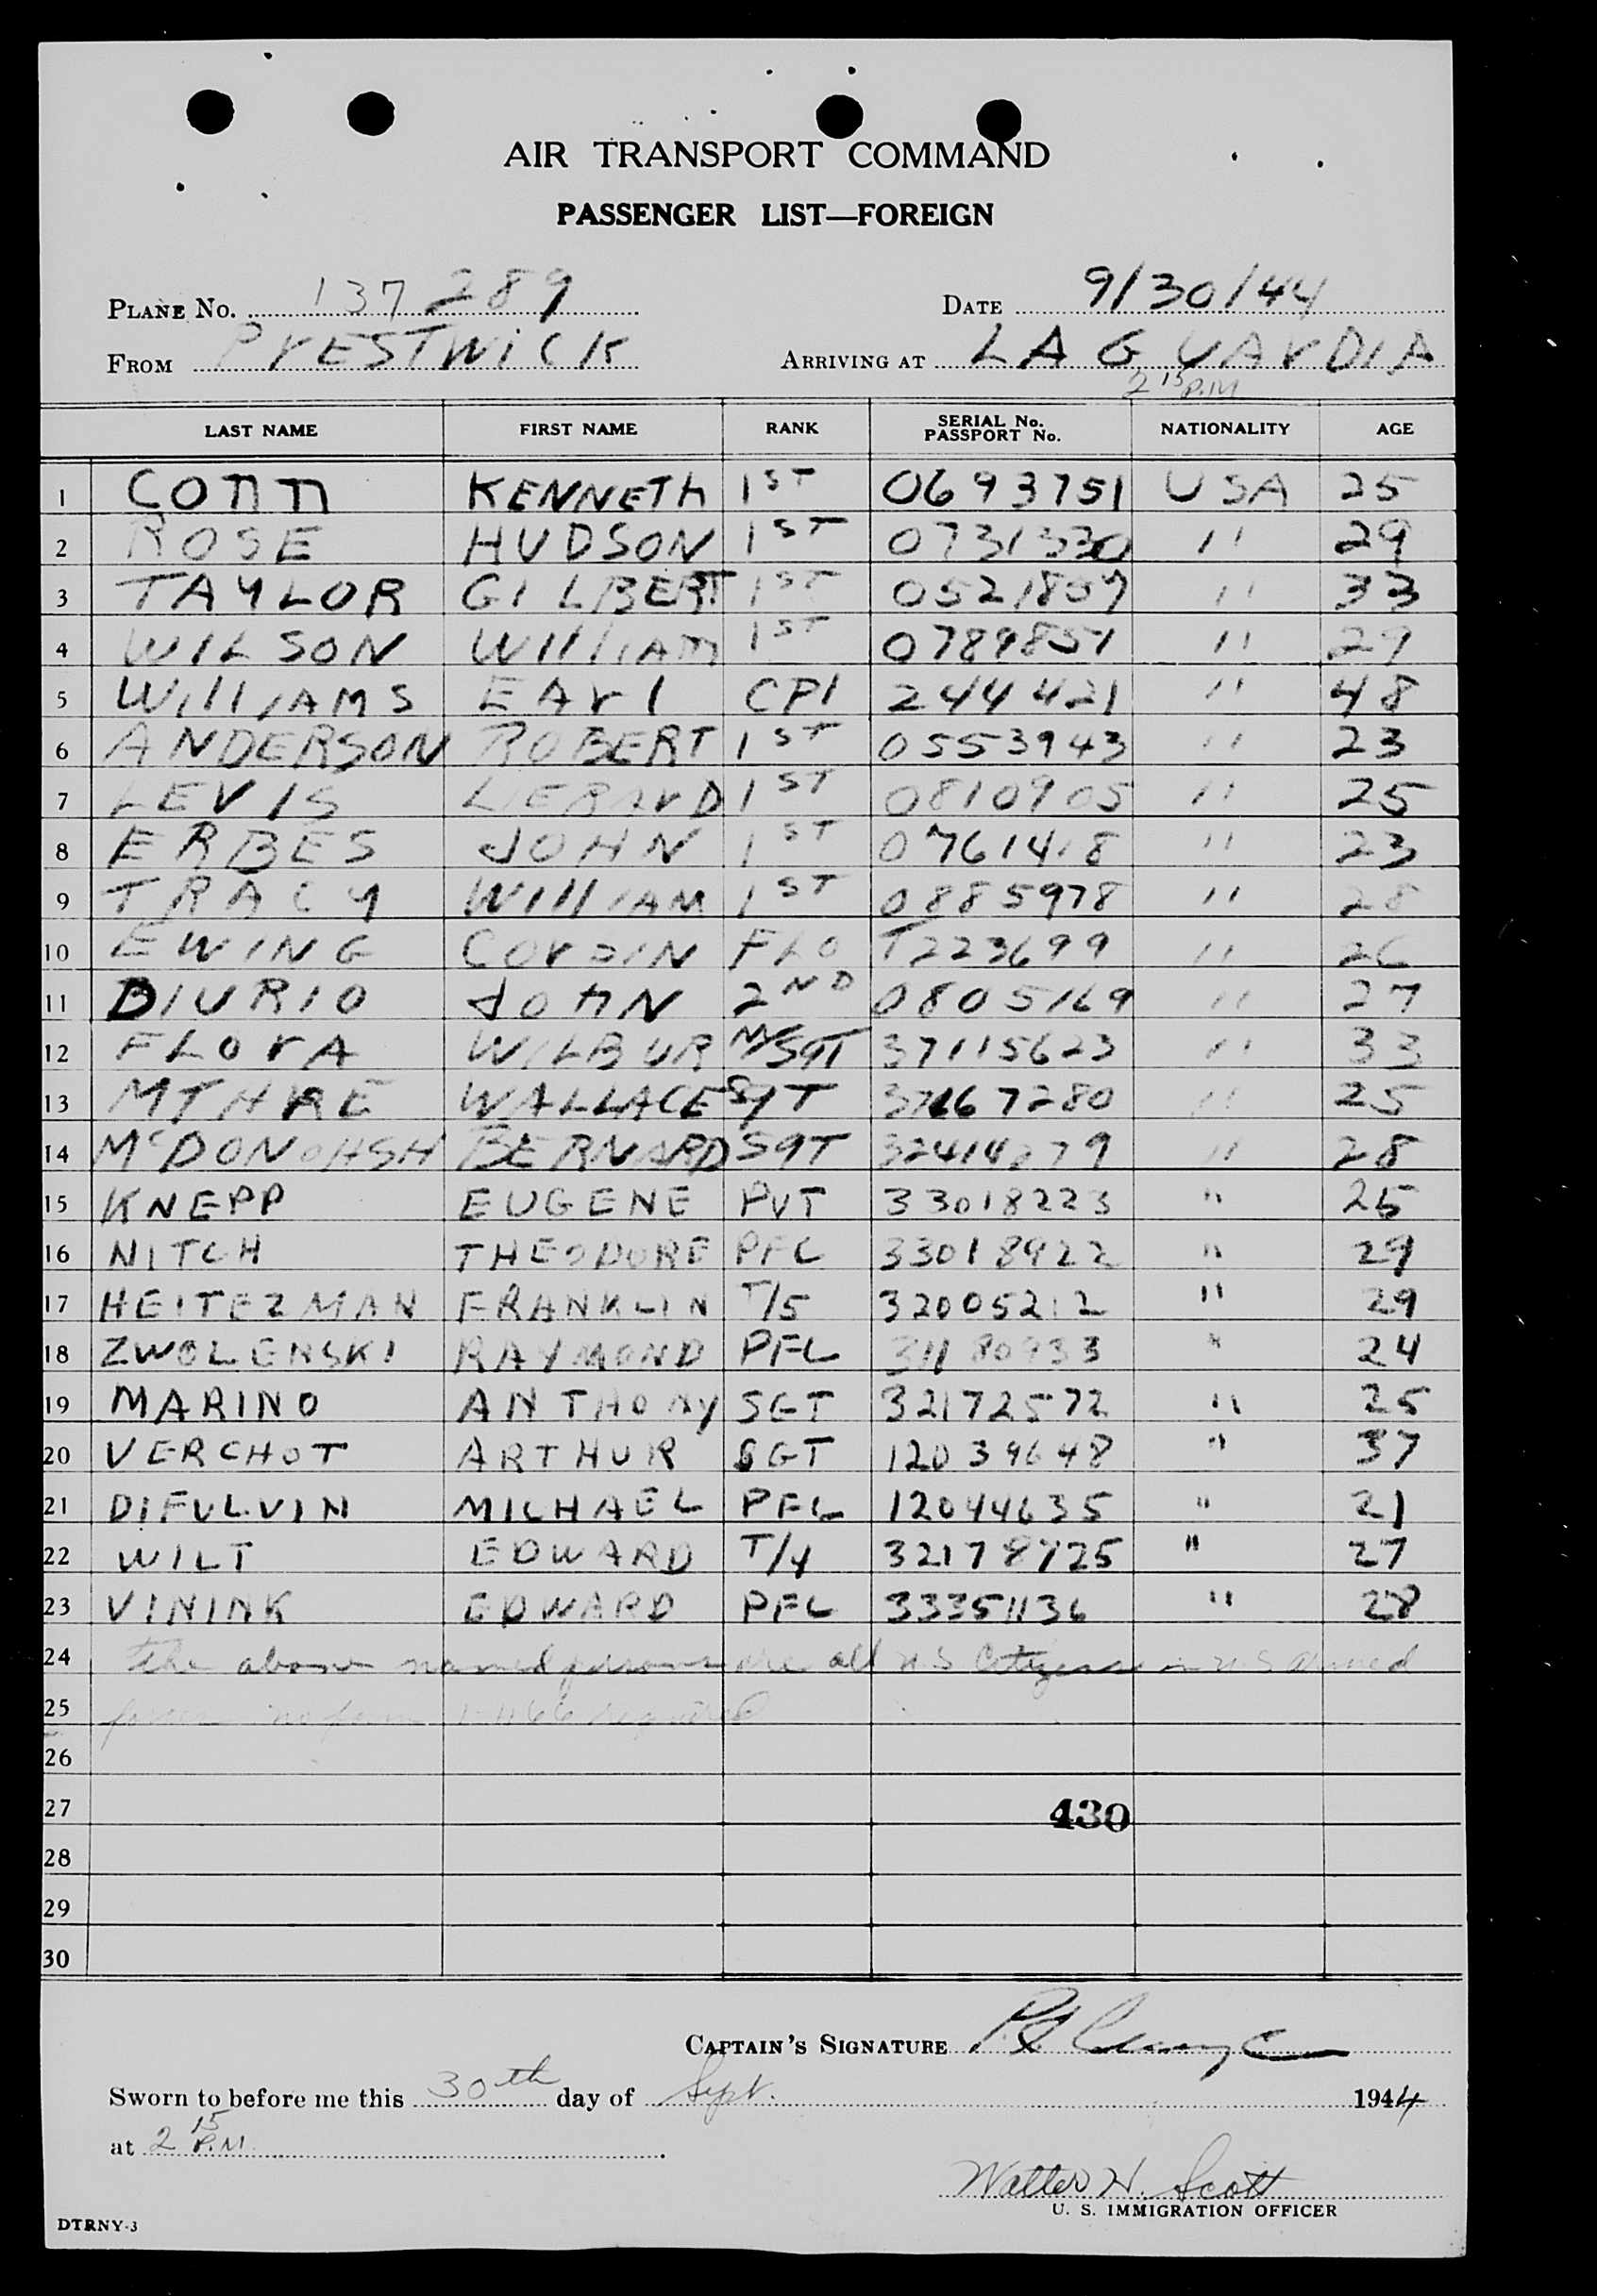 AIR TRANSPORT COMMAND
PASSENGER LIST—FOREIGN
PLANE No. 137 289 DATE 9/30/44
FROM PrESTWiCK ARRIVING AT LAGUArDIA
2 15 P.M
LAST NAME FIRST NAME RANK SERIAL No. PASSPORT No. NATIONALITY AGE
1 CONN KENNETH 1ST 0693751 USA 25
2 ROSE HUDSON 1ST 0731330 " 29
3 TAYLOR GILBERT 1ST 0521857 " 33
4 WILSON WIllIAM 1ST 0789851 " 29
5 WIllIAMS EArl CPl 244421 " 48
6 ANDERSON ROBERT 1ST 0553943 " 23
7 LEVIS 1ST 0810905 " 25
8 ERBES JOHN 1ST 0761418 " 23
9 TRACY WIllIAM 1ST 0885978 " 28
10 EWING FLO T223699 " 26
11 DIURIO JOHN 2ND 0805169 " 27
12 FLOrA WILBUR M/SGT 37115623 " 33
13 MTHRE WALLACE SGT 37167280 " 25
14 McDONOHGH BERNARD SGT " 28
15 KNEPP EUGENE PVT 33018223 " 25
16 NITCH THEODORE PFC 33018922 " 29
17 HEITEZMAN FRANKLIN T/5 32005212 " 29
18 ZWOLENSKI RAYMOND PFC 31180933 " 24
19 MARINO ANTHONY SGT 32172572 " 25
20 VERCHOT ARTHUR SGT 12039648 " 37
21 DIFULVIN MICHAEL PFC 12044635 " 21
22 WILT EDWARD T/4 32178725 " 27
23 VININK EDWARD PFC 33351136 " 28
24 The above named persons are all U S Citizens in U S armed
25 forces no form I-466 required
26
27 430
28
29
30
CAPTAIN'S SIGNATURE
Sworn to before me this 30th day of Sept. 1944
at 2 15 P.M.
Walter H. Scott
U. S. IMMIGRATION OFFICER
DTRNY-3